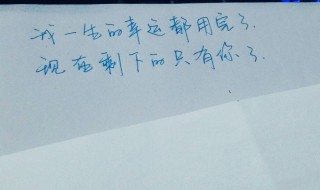 我一生的幸运都用完了.
现在剩下的只有你了.